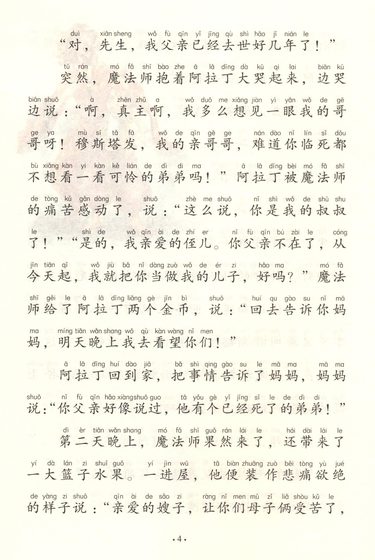 duì xiān sheng wǒ fù qīn yǐ jīng qù shì hǎo jǐ nián le
“对，先生，我父亲已经去世好几年了！”
tū rán mó fǎ shī bào zhe ā lā dīng dà kū qǐ lái biān kū
突然，魔法师抱着阿拉丁大哭起来，边哭
biān shuō ā zhēn zhǔ a wǒ duō me xiǎng jiàn yì yǎn wǒ de gē
边说：“啊，真主啊，我多么想见一眼我的哥
ge ya mù sī tǎ fā wǒ de qīn gē ge nán dào nǐ lín sǐ dōu
哥呀！穆斯塔发，我的亲哥哥，难道你临死都
bù xiǎng kàn yi kàn kě lián de dì di ma ā lā dīng bèi mó fǎ shī
不想看一看可怜的弟弟吗！”阿拉丁被魔法师
de tòng kǔ gǎn dòng le shuō zhè me shuō nǐ shì wǒ de shū shu
的痛苦感动了，说：“这么说，你是我的叔叔
le shì de wǒ qīn ài de zhí er nǐ fù qīn bú zài le cóng
了！”“是的，我亲爱的侄儿。你父亲不在了，从
jīn tiān qǐ wǒ jiù bǎ nǐ dàng zuò wǒ de ér zi hǎo ma mó fǎ
今天起，我就把你当做我的儿子，好吗？”魔法
shī gěi le ā lā dīng liǎng gè jīn bì shuō huí qù gào su nǐ mā
师给了阿拉丁两个金币，说：“回去告诉你妈
ma míng tiān wǎn shang wǒ qù kàn wàng nǐ men
妈，明天晚上我去看望你们！”
ā lā dīng huí dào jiā bǎ shì qing gào su le mā ma mā ma
阿拉丁回到家，把事情告诉了妈妈，妈妈
shuō nǐ fù qīn hǎo xiàng shuō guo tā yǒu gè yǐ jīng sǐ le de dì di
说：“你父亲好像说过，他有个已经死了的弟弟！”
dì èr tiān wǎn shang mó fǎ shī guǒ rán lái le hái dài lái le
第二天晚上，魔法师果然来了，还带来了
yí dà lán zi shuǐ guǒ yí jìn wū tā biàn zhuāng zuò bēi tòng yù jué
一大篮子水果。一进屋，他便装作悲痛欲绝
de yàng zi shuō qīn ài de sǎo zi ràng nǐ men mǔ zǐ liǎ shòu kǔ le
的样子说：“亲爱的嫂子，让你们母子俩受苦了，
·4·